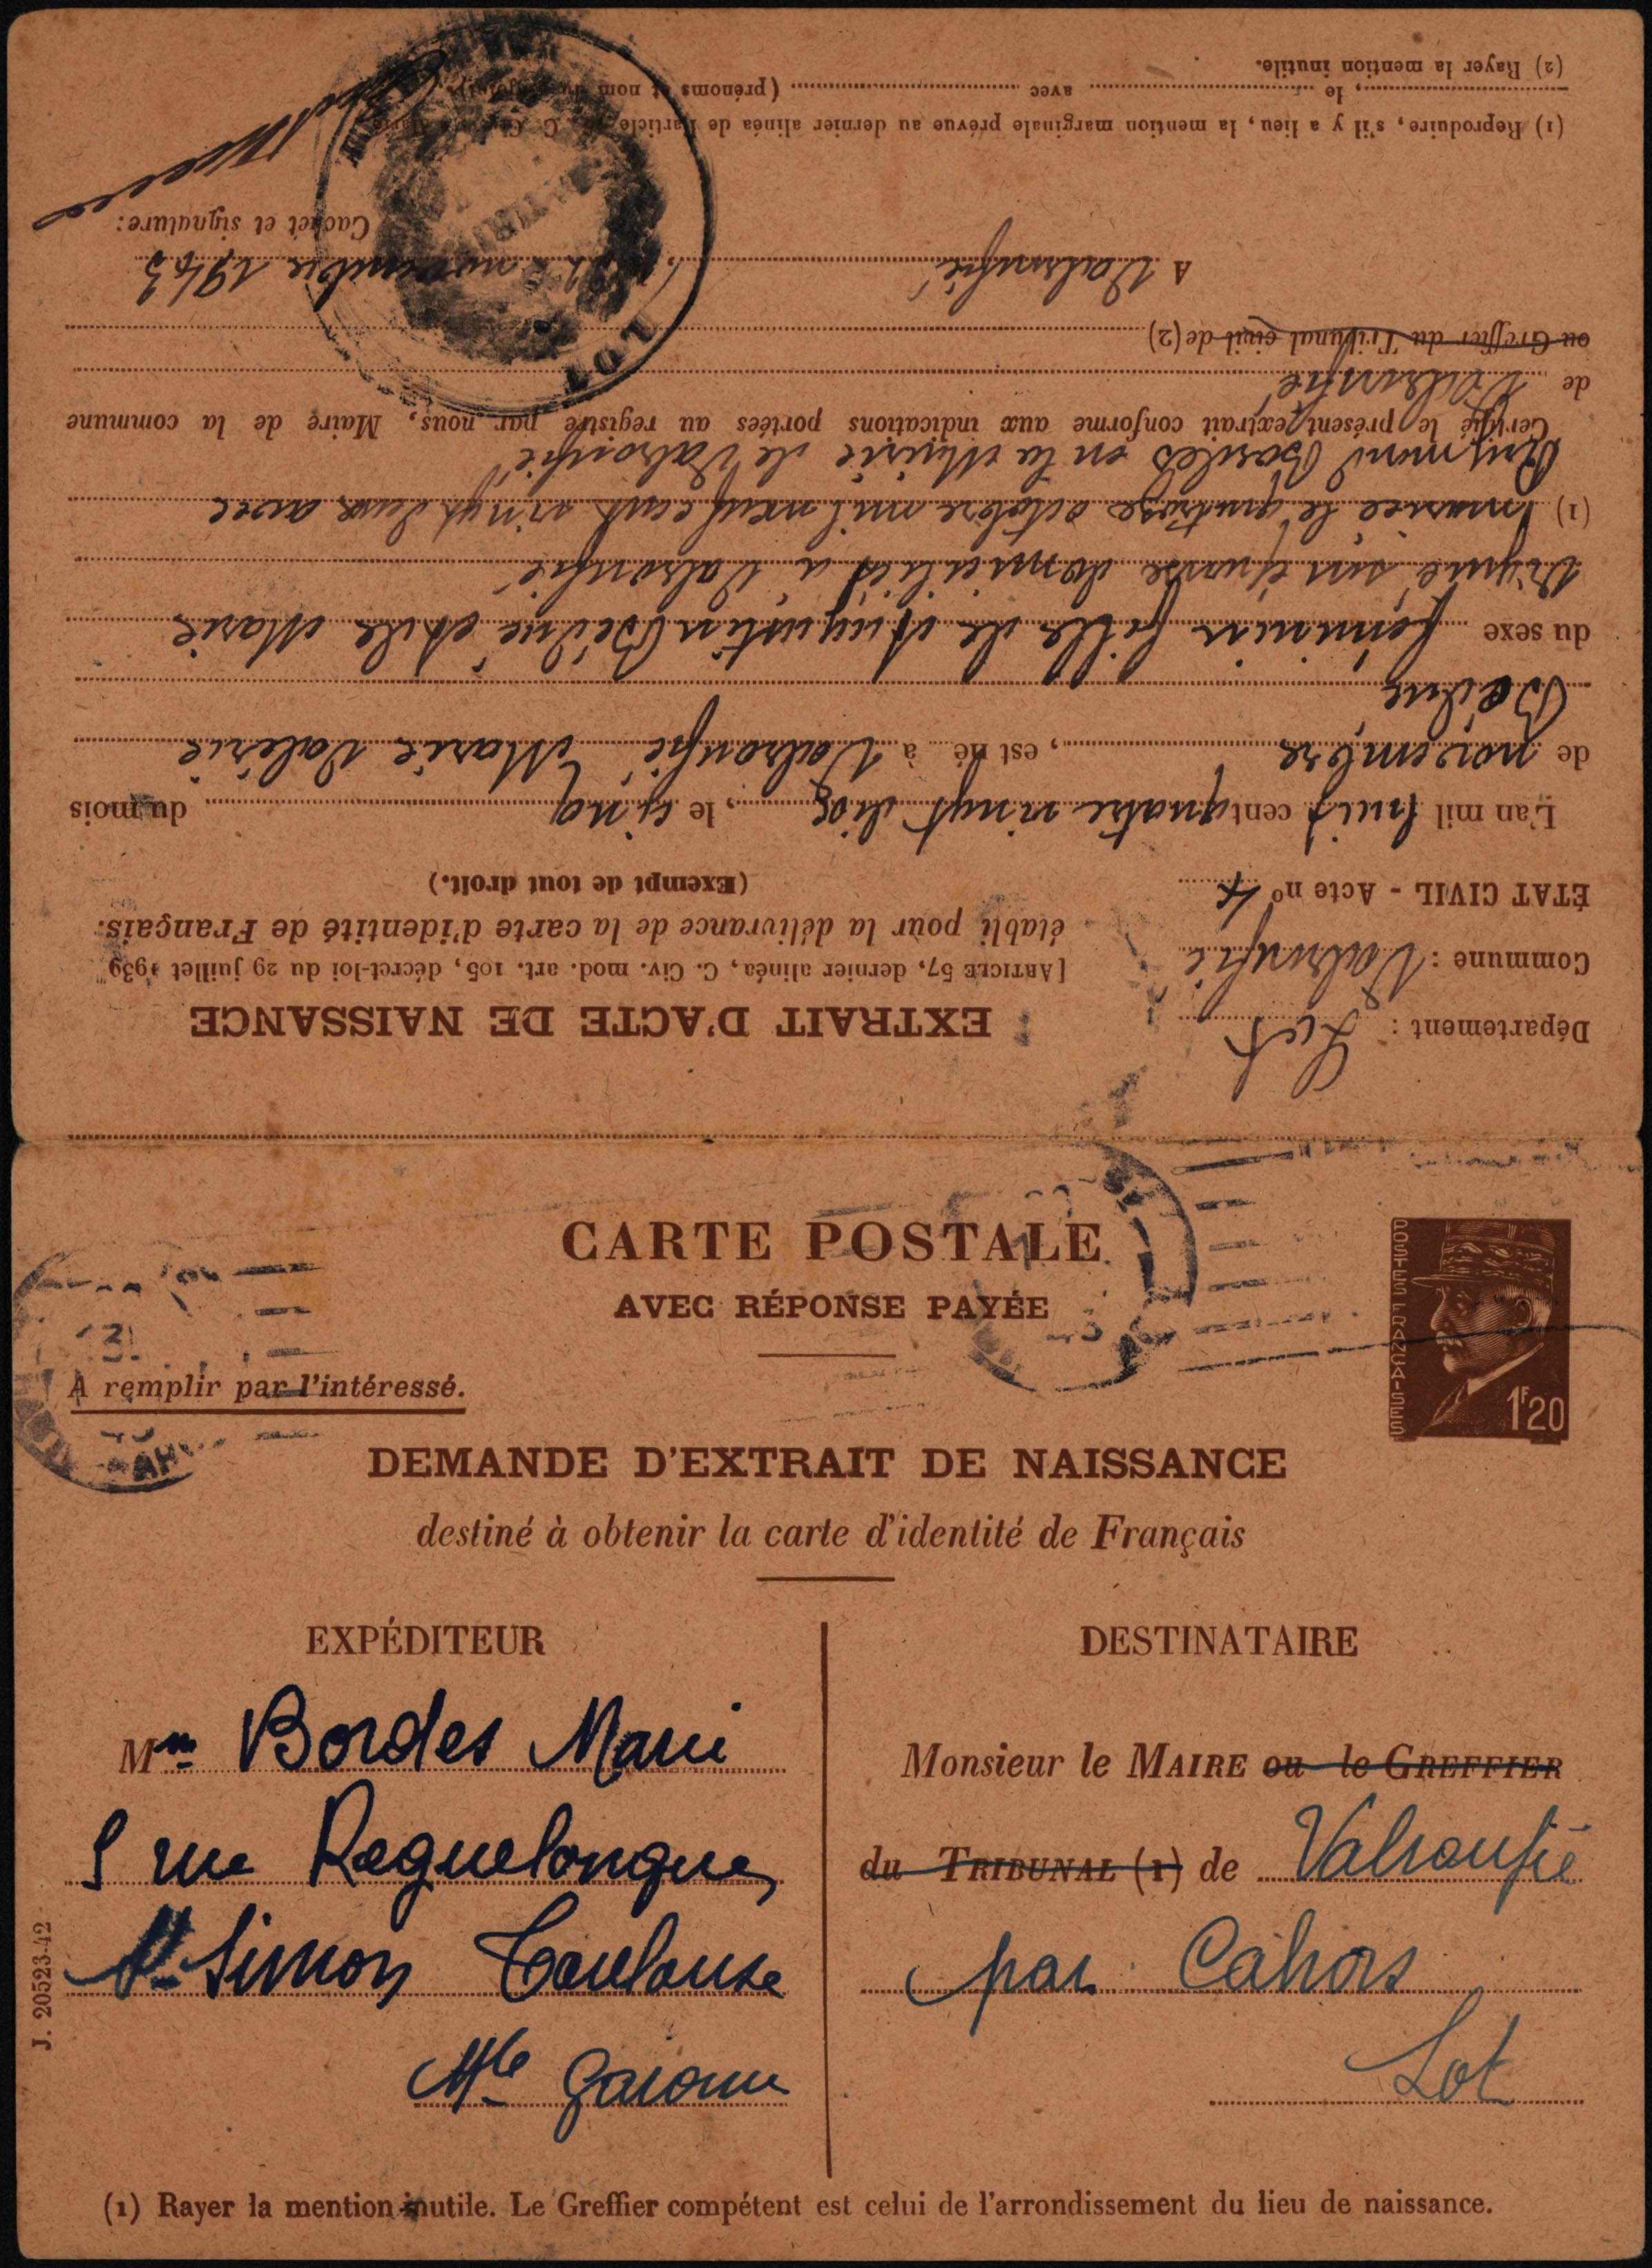 CARTE POSTALE
AVEC RÉPONSE PAYÉE
POSTES FRANÇAISES
1F20
A remplir par l'intéressé.
DEMANDE D'EXTRAIT DE NAISSANCE
destiné à obtenir la carte d'identité de Français
EXPÉDITEUR
Mme Bordes Marie
5 rue Reguelongue,
St Simon Toulouse
Hte Garonne
DESTINATAIRE
Monsieur le MAIRE ou le GREFFIER
du TRIBUNAL (1) de Valroufié
par Cahors
Lot
J. 20523-42
(1) Rayer la mention inutile. Le Greffier compétent est celui de l'arrondissement du lieu de naissance.
Département : Lot
Commune : Valroufié
ÉTAT CIVIL - Acte nº 4
EXTRAIT D'ACTE DE NAISSANCE
[ARTICLE 57, dernier alinéa, C. Civ. mod. art. 105, décret-loi du 29 juillet 1939
établi pour la délivrance de la carte d'identité de Français.
(Exempt de tout droit.)
L'an mil huit cent quatre vingt dix, le cinq du mois
de novembre, est né à Valroufié Marie Valérie
Bédué
du sexe féminin fille de Augustin Bédué et de Marie
Vignié, son épouse domiciliés à Valroufié
(1) mariée le quatorze octobre mil neuf cent vingt deux avec
Raymond Bordes en la Mairie de Valroufié
Certifié le présent extrait conforme aux indications portées au registre par nous, Maire de la commune
de Valroufié
ou Greffier du Tribunal civil de (2)
A Valroufié, novembre 1943
Cachet et signature :
LOT
(1) Reproduire, s'il y a lieu, la mention marginale prévue au dernier alinéa de l'article
, le avec (prénoms et nom du conjoint).
(2) Rayer la mention inutile.